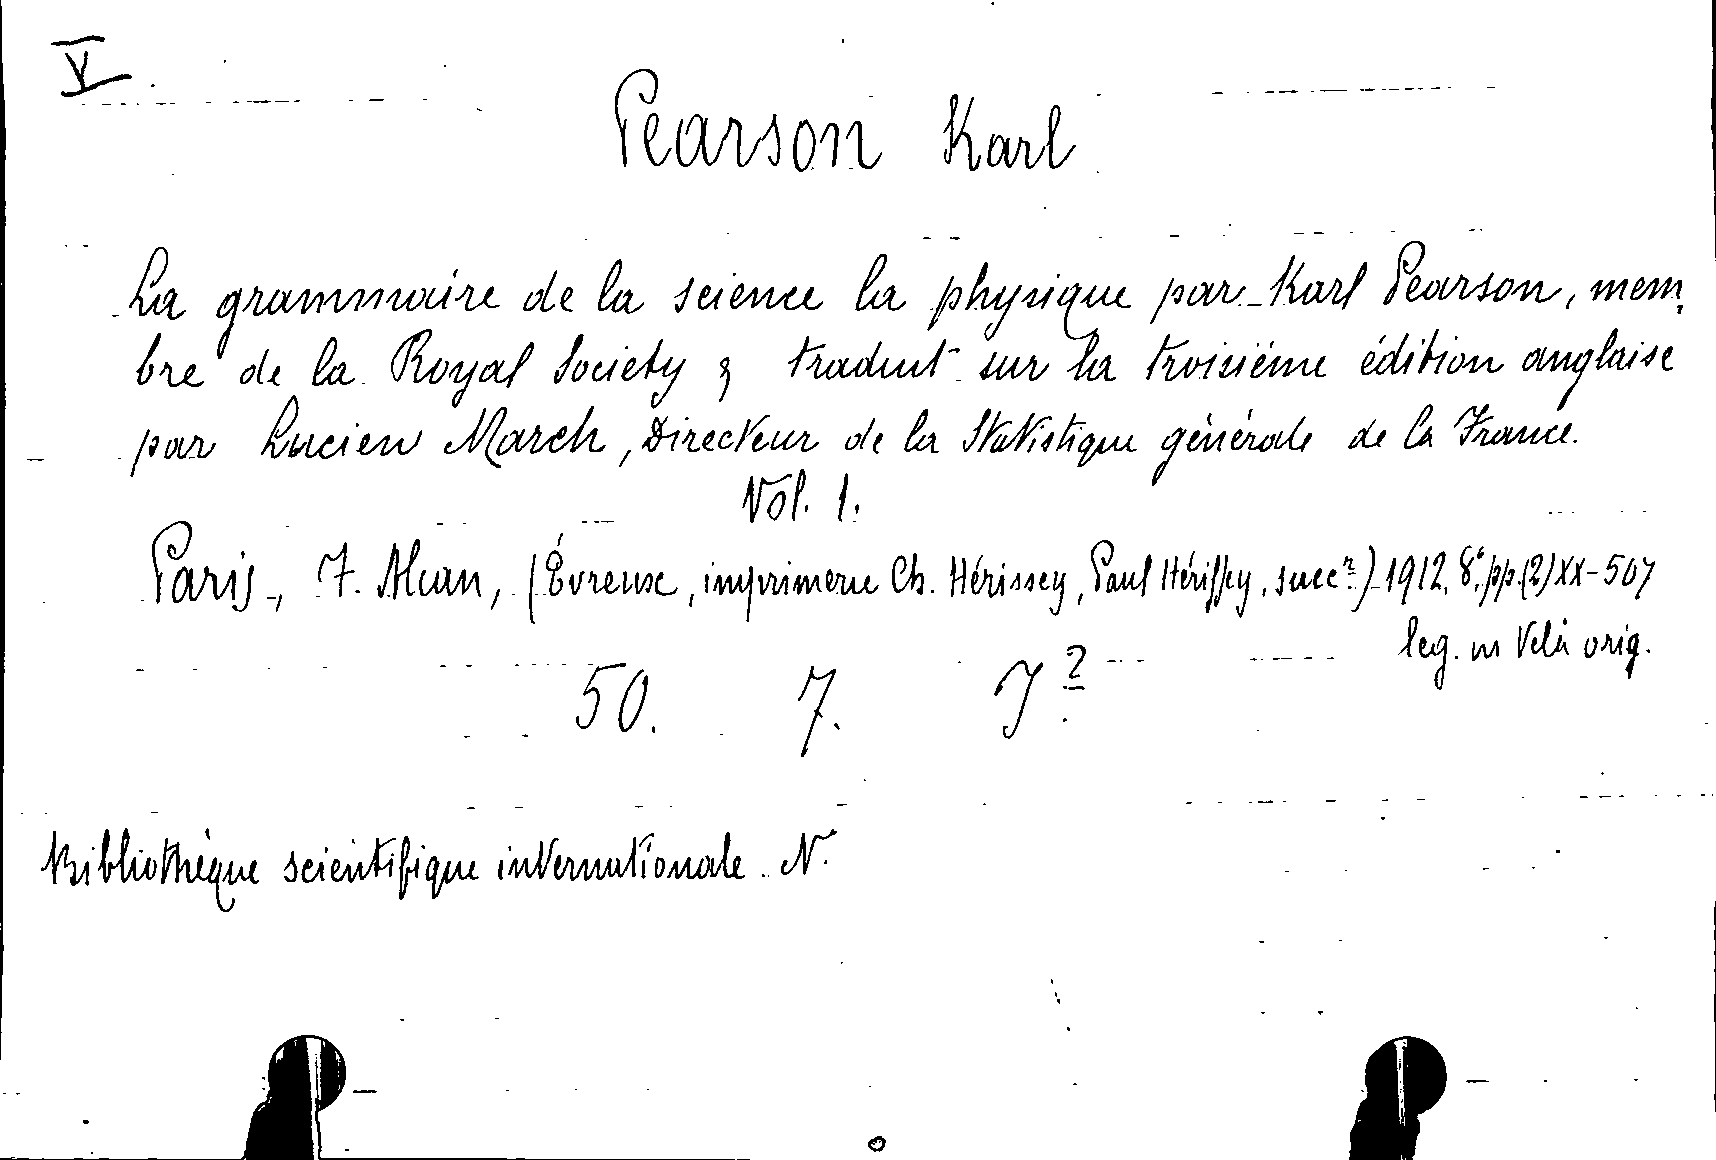 V
Pearson Karl
La grammaire de la science la physique par Karl Pearson, mem-
bre de la Royal Society ; traduit sur la troisième édition anglaise
par Lucien March, Directeur de la Statistique générale de la France.
Vol. 1.
Paris, F. Alcan, (Évreux, imprimerie Ch. Hérissey, Paul Hérissey, succr.) 1912, 8°, pp. (2) XX-507
leg. in tela orig.
50. 7. J 2
Bibliothèque scientifique internationale N.